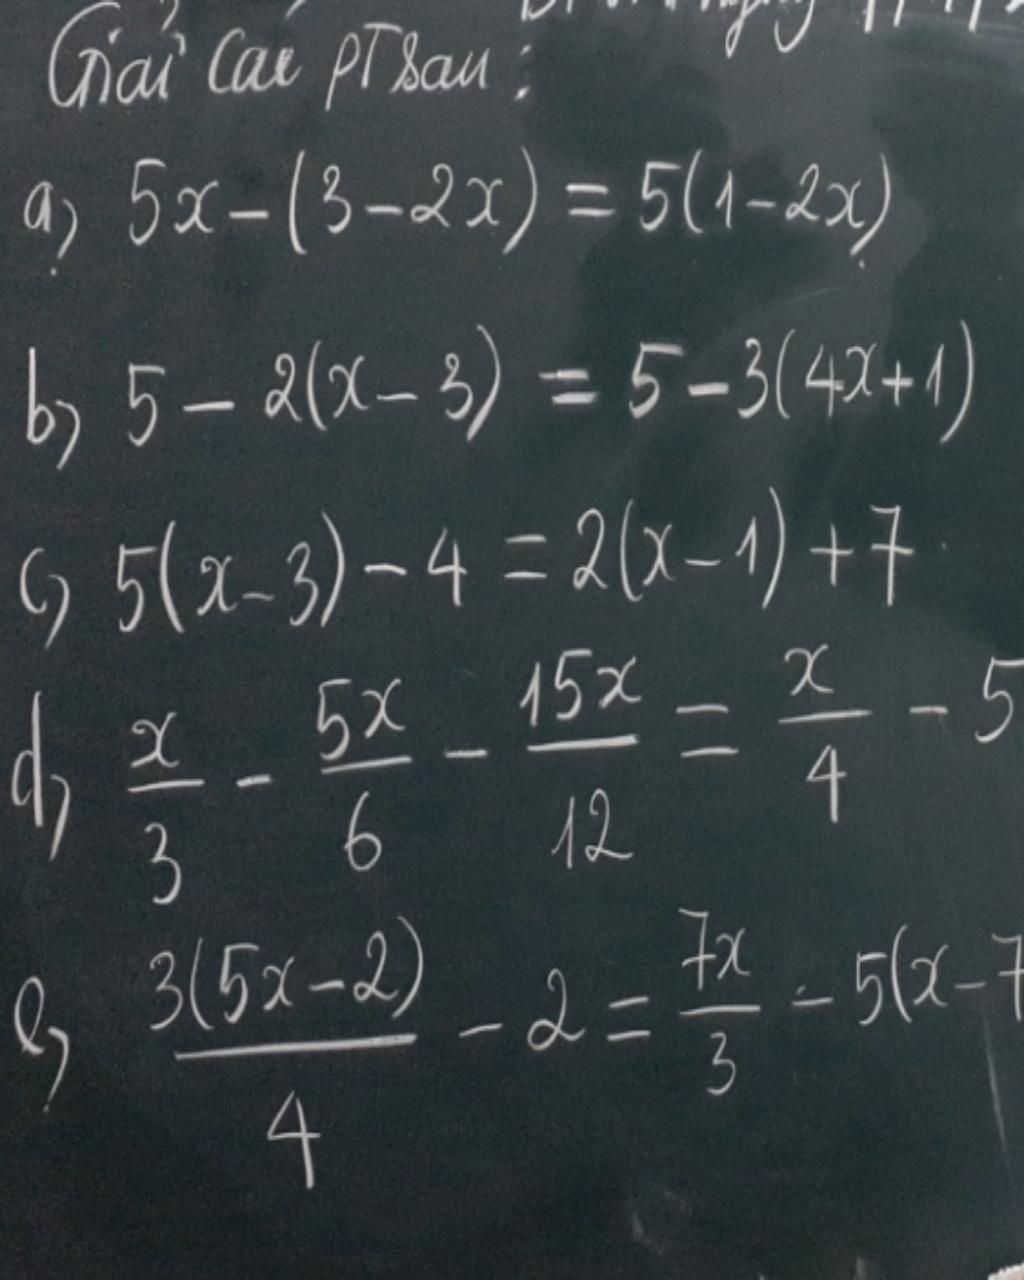 Giải các pT sau :
a) 5x - (3 - 2x) = 5(1 - 2x)
b) 5 - 2(x - 3) = 5 - 3(4x + 1)
c) 5(x - 3) - 4 = 2(x - 1) + 7
d) x/3 - 5x/6 - 15x/12 = x/4 - 5
e) 3(5x - 2)/4 - 2 = 7x/3 - 5(x - 7